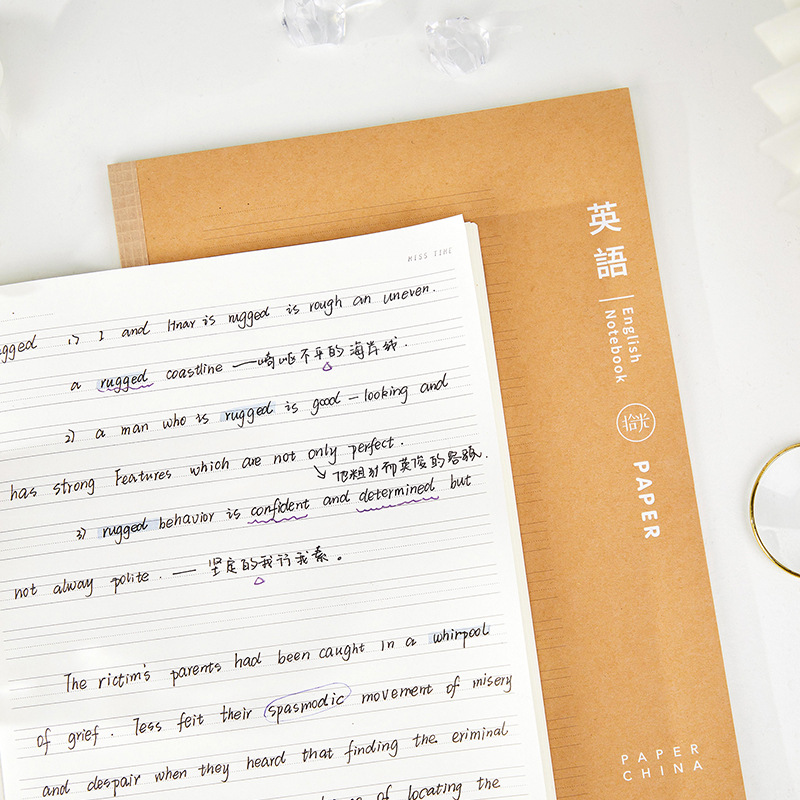 MISS TIME
ugged 1) I and Hnar is rugged is rough an uneven.
a rugged coastline ——崎岖不平的海岸线.
2) a man who is rugged is good - looking and
has strong Features which are not only perfect.
英俊的容颜.
3) rugged behavior is confident and determined but
not alway polite. —— 坚定的我行我素。
The rictim's parents had been caught in a whirpool
of grief. Tess feit their spasmodic movement of misery
and despair when they heard that finding the eriminal
of locating the
英語
English
Notebook
拾光
PAPER
PAPER
CHINA